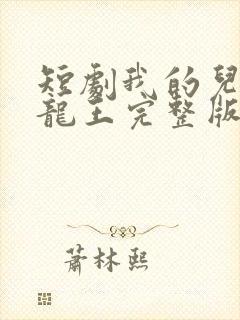 短劇我的兒
龍王完整版
蕭林熙